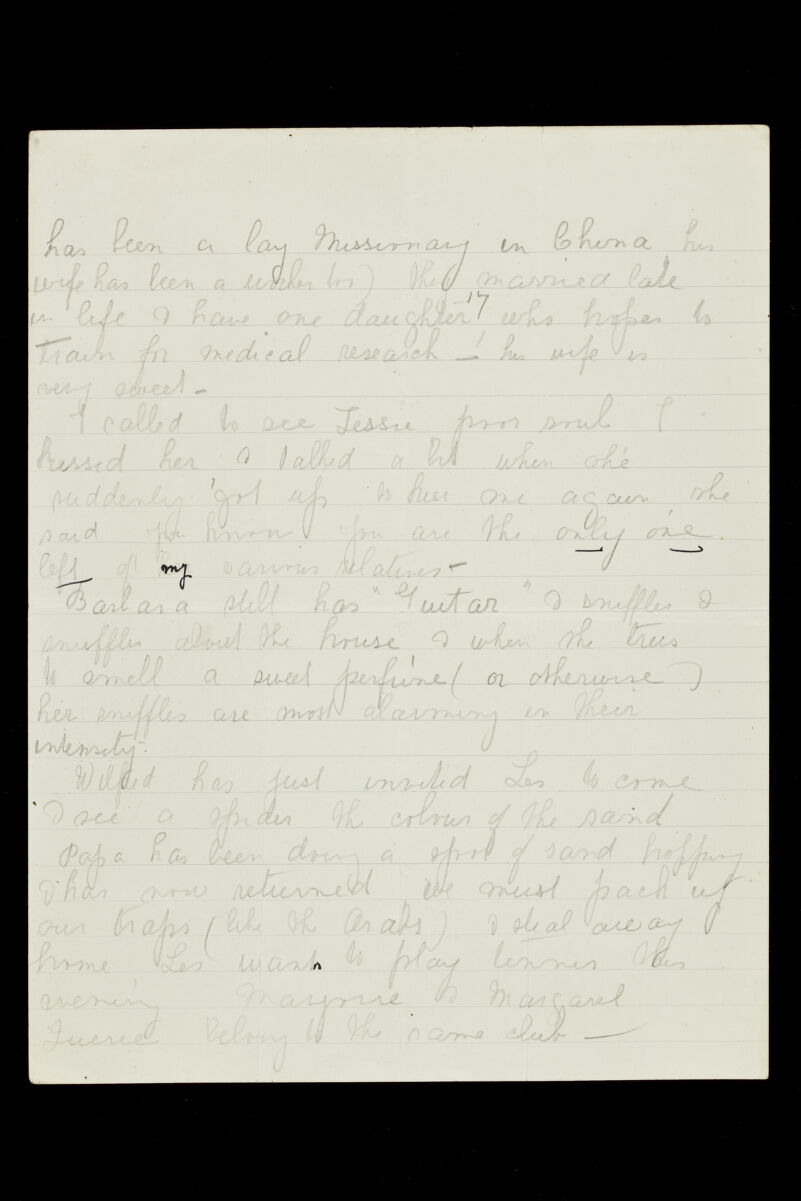 has been a lay Missionary in China, his
wife has been a worker too) they married late
in life & have one daughter 17 who hopes to
train for medical research — his wife is
very sweet —
I called to see Jessie poor soul I
kissed her & talked a bit when she
suddenly got up to kiss me again she
said you know you are the only one
left of my various relatives —
Barbara still has "Guitar" & sniffles &
snuffles about the house & when she tries
to smell a sweet perfume (or otherwise)
her sniffles are most alarming in their
intensity.
Wilfred has just invited Les to come
& see a spider the colour of the sand
Papa has been doing a spot of sand hopping
& has now returned we must pack up
our traps (like the Arabs) & steal away
home Les wants to play tennis this
evening Marjorie & Margaret
belong to the same club —